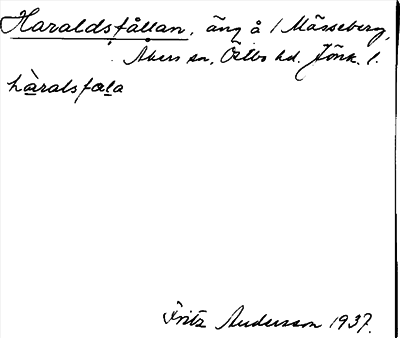 Haraldsfållan, äng å 1 Mässeberg,
Åkers sn, Östbo hd. Jönk. l.
hàralsfala
Fritz Andersson 1937.